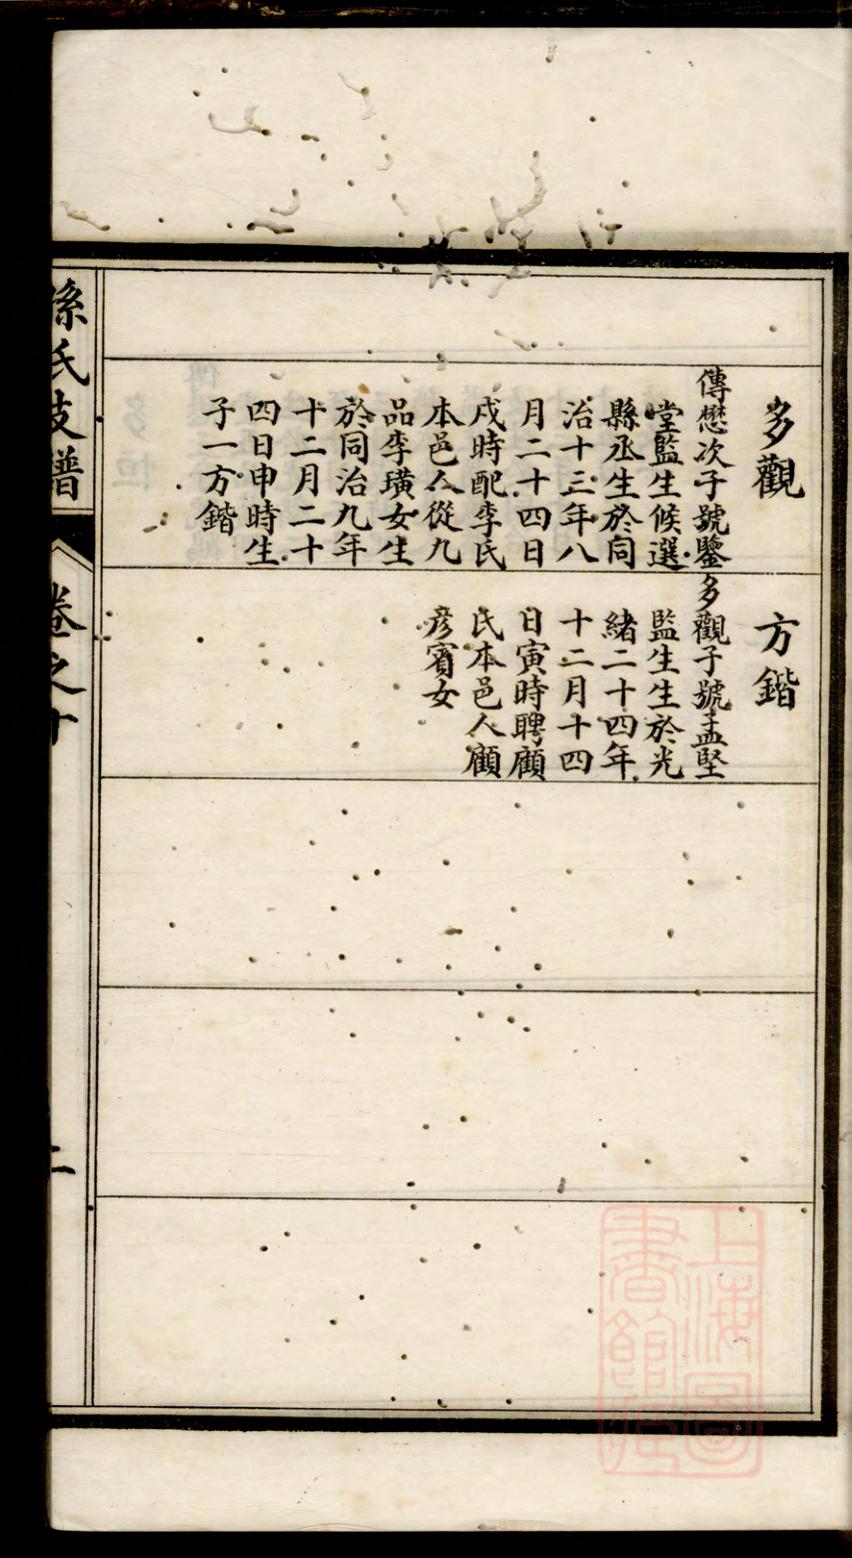 多觀
傳懋次子號鑒
堂監生候選
縣丞生於同
治十三年八
月二十四日
戌時配李氏
本邑人從九
品李璜女生
於同治九年
十二月二十
四日申時生
子一方鍇
方鍇
多觀子號孟堅
監生生於光
緒二十四年
十二月十四
日寅時聘顧
氏本邑人顧
彥賓女
孫氏支譜
卷之十
二
上海圖書館藏